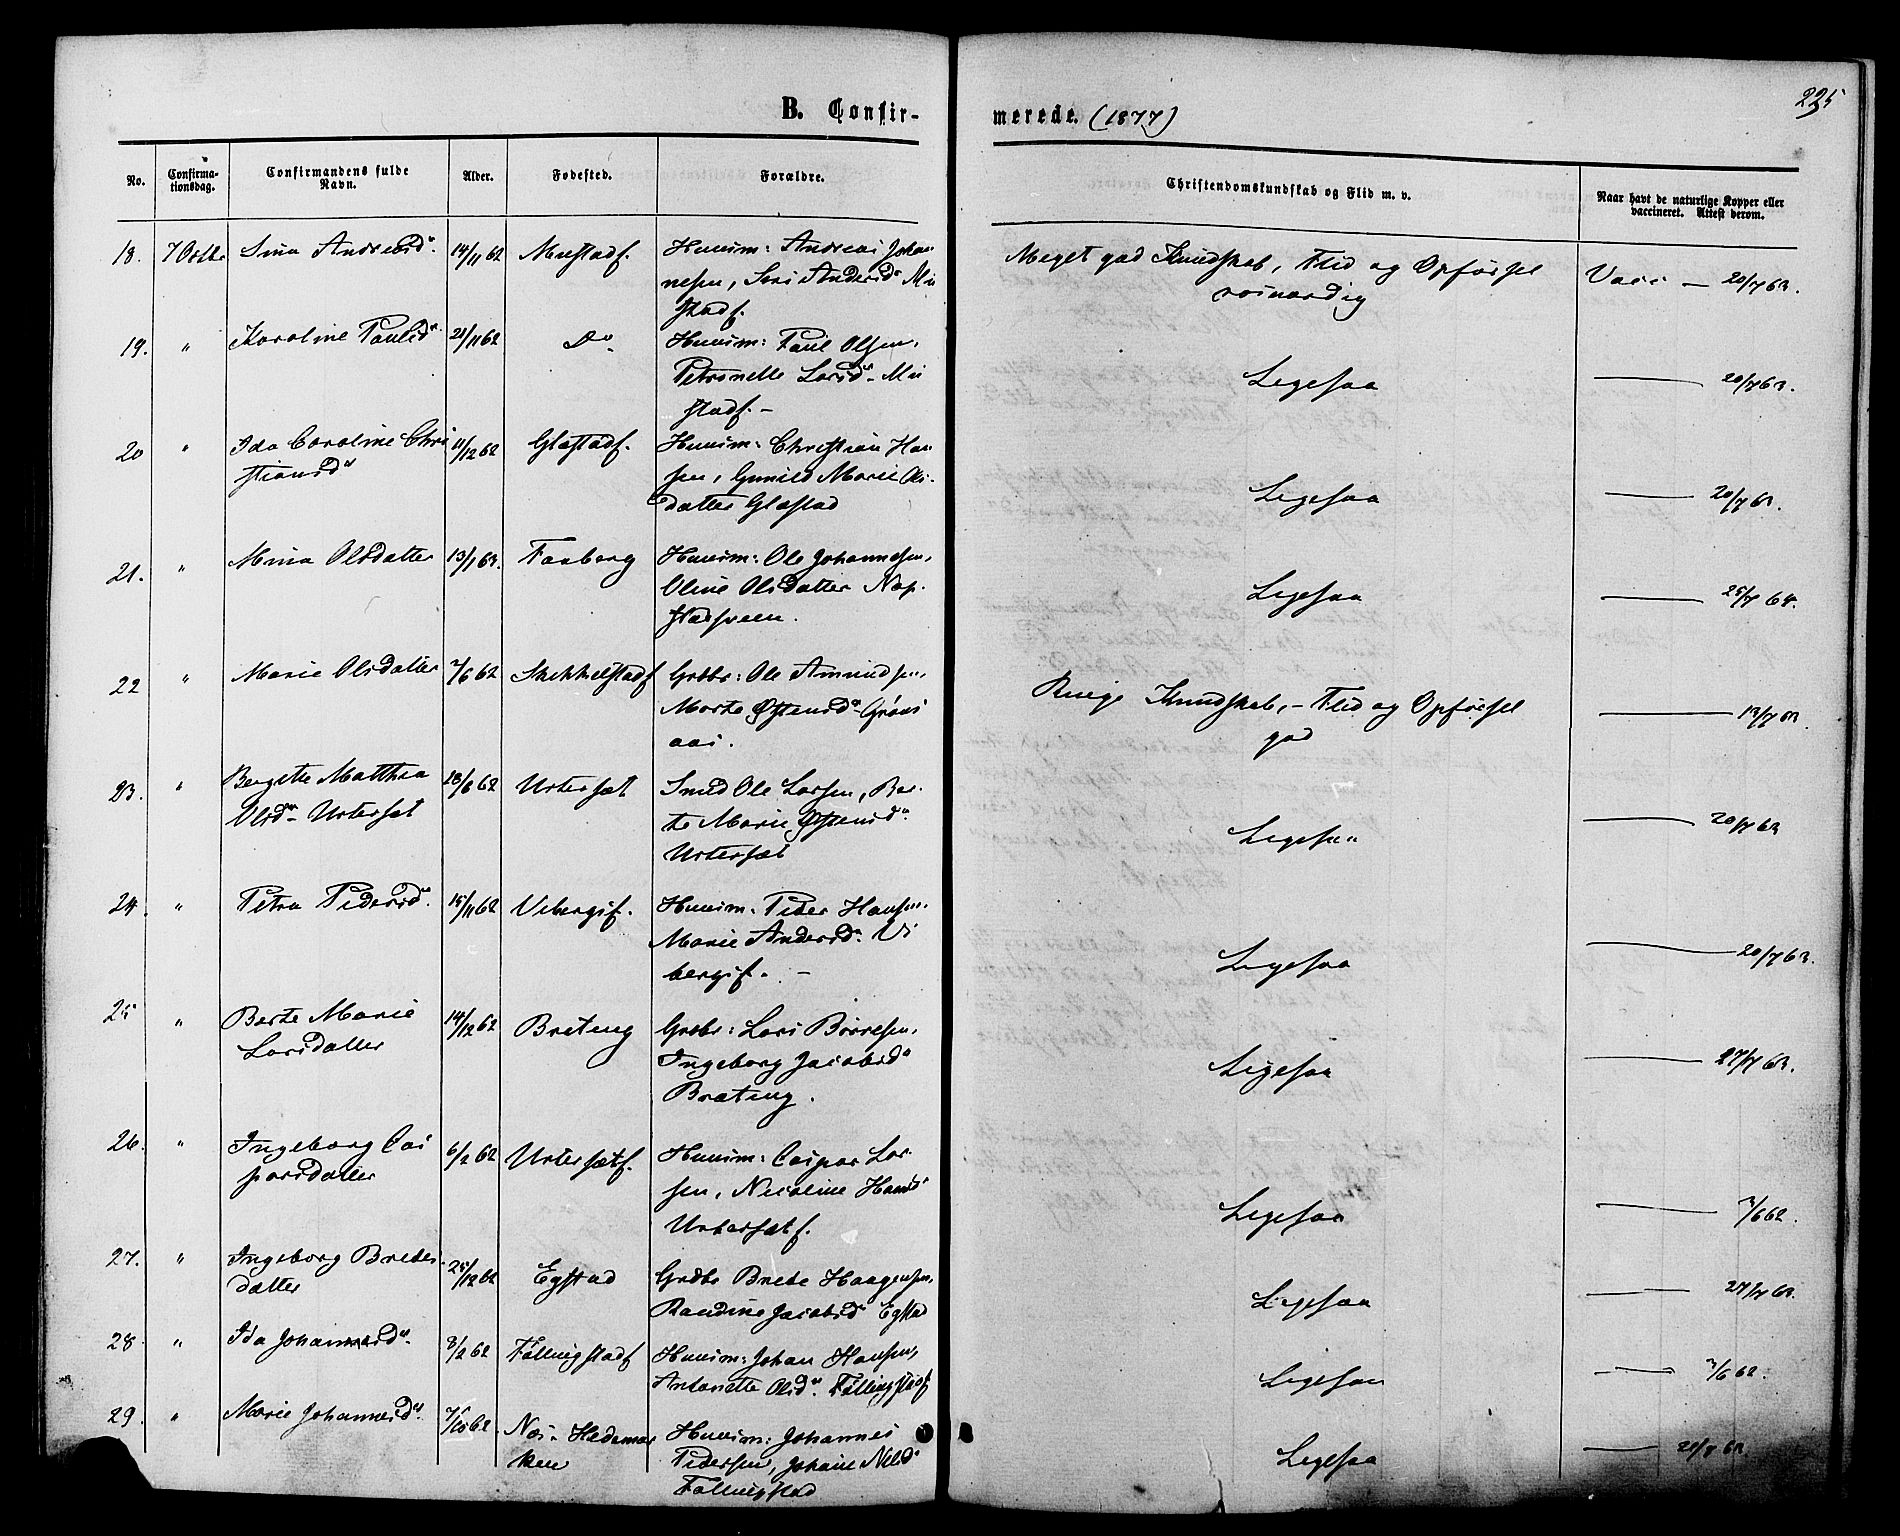 225
B. Confir-
merede. (1877)
No.
Confirma-
tionsdag.
Confirmandens fulde
Navn.
Alder.
Fødested.
Forældre.
Christendomskundskab og Flid m. v.
Naar havt de naturlige Kopper eller
vaccineret. Attest derom.
18. 7 Octbr Sina Andreasdr. 14/11 62 Mustadf. Huusm: Andreas Johan
nesen, Siri Andersdr Mu
stadf.
Meget god Kundskab, Flid og Opførsel
roesværdig
Vacc — 20/7 63.
19. " Karoline Paulsdr 21/11 62 Do Huusm: Paul Olsen,
Petronelle Larsdr. Mu
stadf. -
Ligesaa — 20/7 63.
20 " Ida Caroline Chri 11/12 62 Glæstadf. Huusm: Christian Han
stiansdr sen, Gunild Marie Ols-
datter Glæstad
Ligesaa — 20/7 63.
21. " Mina Olsdatter 13/1 63. Faaberg Huusm: Ole Johannesen,
Oline Olsdatter Nøp-
stadsveen.
Ligesaa — 25/7 64.
22 " Marie Olsdatter 2/6 62 Skikkelstadf Grdbr: Ole Amundsen,
Marte Østensdr. Grøns
aas.
Ringe Kundskab, - Flid og Opførsel
god
— 13/7 63
23. " Bergitte Matthea 28/6 62 Urtersæt Smed Ole Larsen, Ber-
Olsdr. Urtersæt te Marie Østensdr.
Urtersæt
Ligesaa — 20/7 63
24. " Petra Pedersdr. 15/11 62 Vibergsf. Huusm: Peder Hansen,
Marie Andersdr. Vi
bergsf. -
Ligesaa — 20/7 63.
25 " Berte Marie 14/12 62 Brateng Grdbr: Lars Børresen,
Larsdatter Ingeborg Jacobsdr
Brateng.
Ligesaa — 27/7 63.
26. " Ingeborg Cas 6/2 62 Urtersætf. Huusm: Caspar Lar-
parsdatter sen, Nicoline Hansdr
Urtersætf.
Ligesaa — 3/6 62.
27. " Ingeborg Bredes- 25/12 62 Egstad Grdbr Brede Haagensen,
datter Randine Jacobsdr Egstad
Ligesaa — 27/7 63.
28. " Ida Johannesdr. 8/2 62 Føllingstadf Huusm: Johan Hansen,
Antonette Olsdr. Føllingstadf
Ligesaa — 3/6 62.
29. " Marie Johannesdr. 7/10 62. Næs - Hedemar Huusm: Johannes
ken Pedersen, Johane Nilsdr
Føllingstad
Ligesaa — 20/7 63.